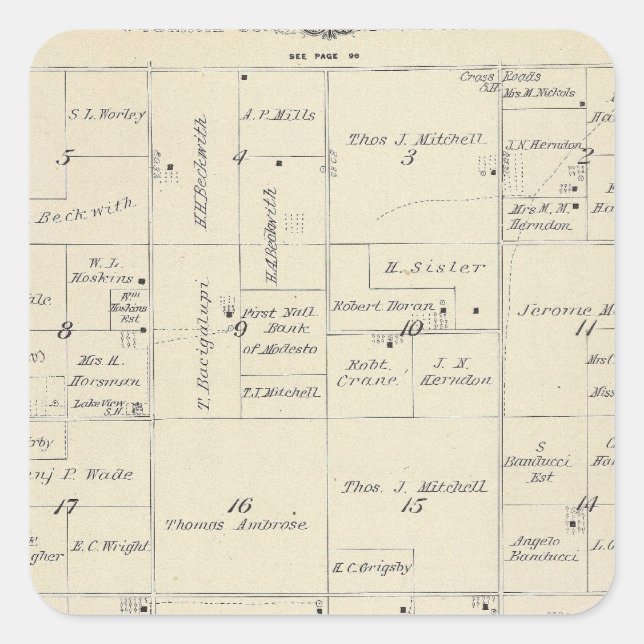 SEE PAGE 96
Cross Roads
S.H.
Mrs M. Nickols
S. L. Worley
A. P. Mills
Thos J. Mitchell
J. N. Herndon
5
H.H. Beckwith
4
3
2
Beckwith
H.A. Beckwith
Mrs M. M.
Herndon
W. L.
Hoskins
H. Sister
Wm
Hoskins
Est
T. Bacigalupi
First Natl.
Bank
of Modesto
Robert Doran
Jerome
8
9
10
11
Mrs H.
Horsman
Robt.
Crane
J. N.
Herndon
Mrs C.
Miss
Lake View
S.H.
T.J. Mitchell
P. Wade
S
Banducci
Est
17
16
Thos. J. Mitchell
15
14
Thomas Ambrose
E. C. Wright
Angelo
Banducci
H. C. Grigsby
L. G